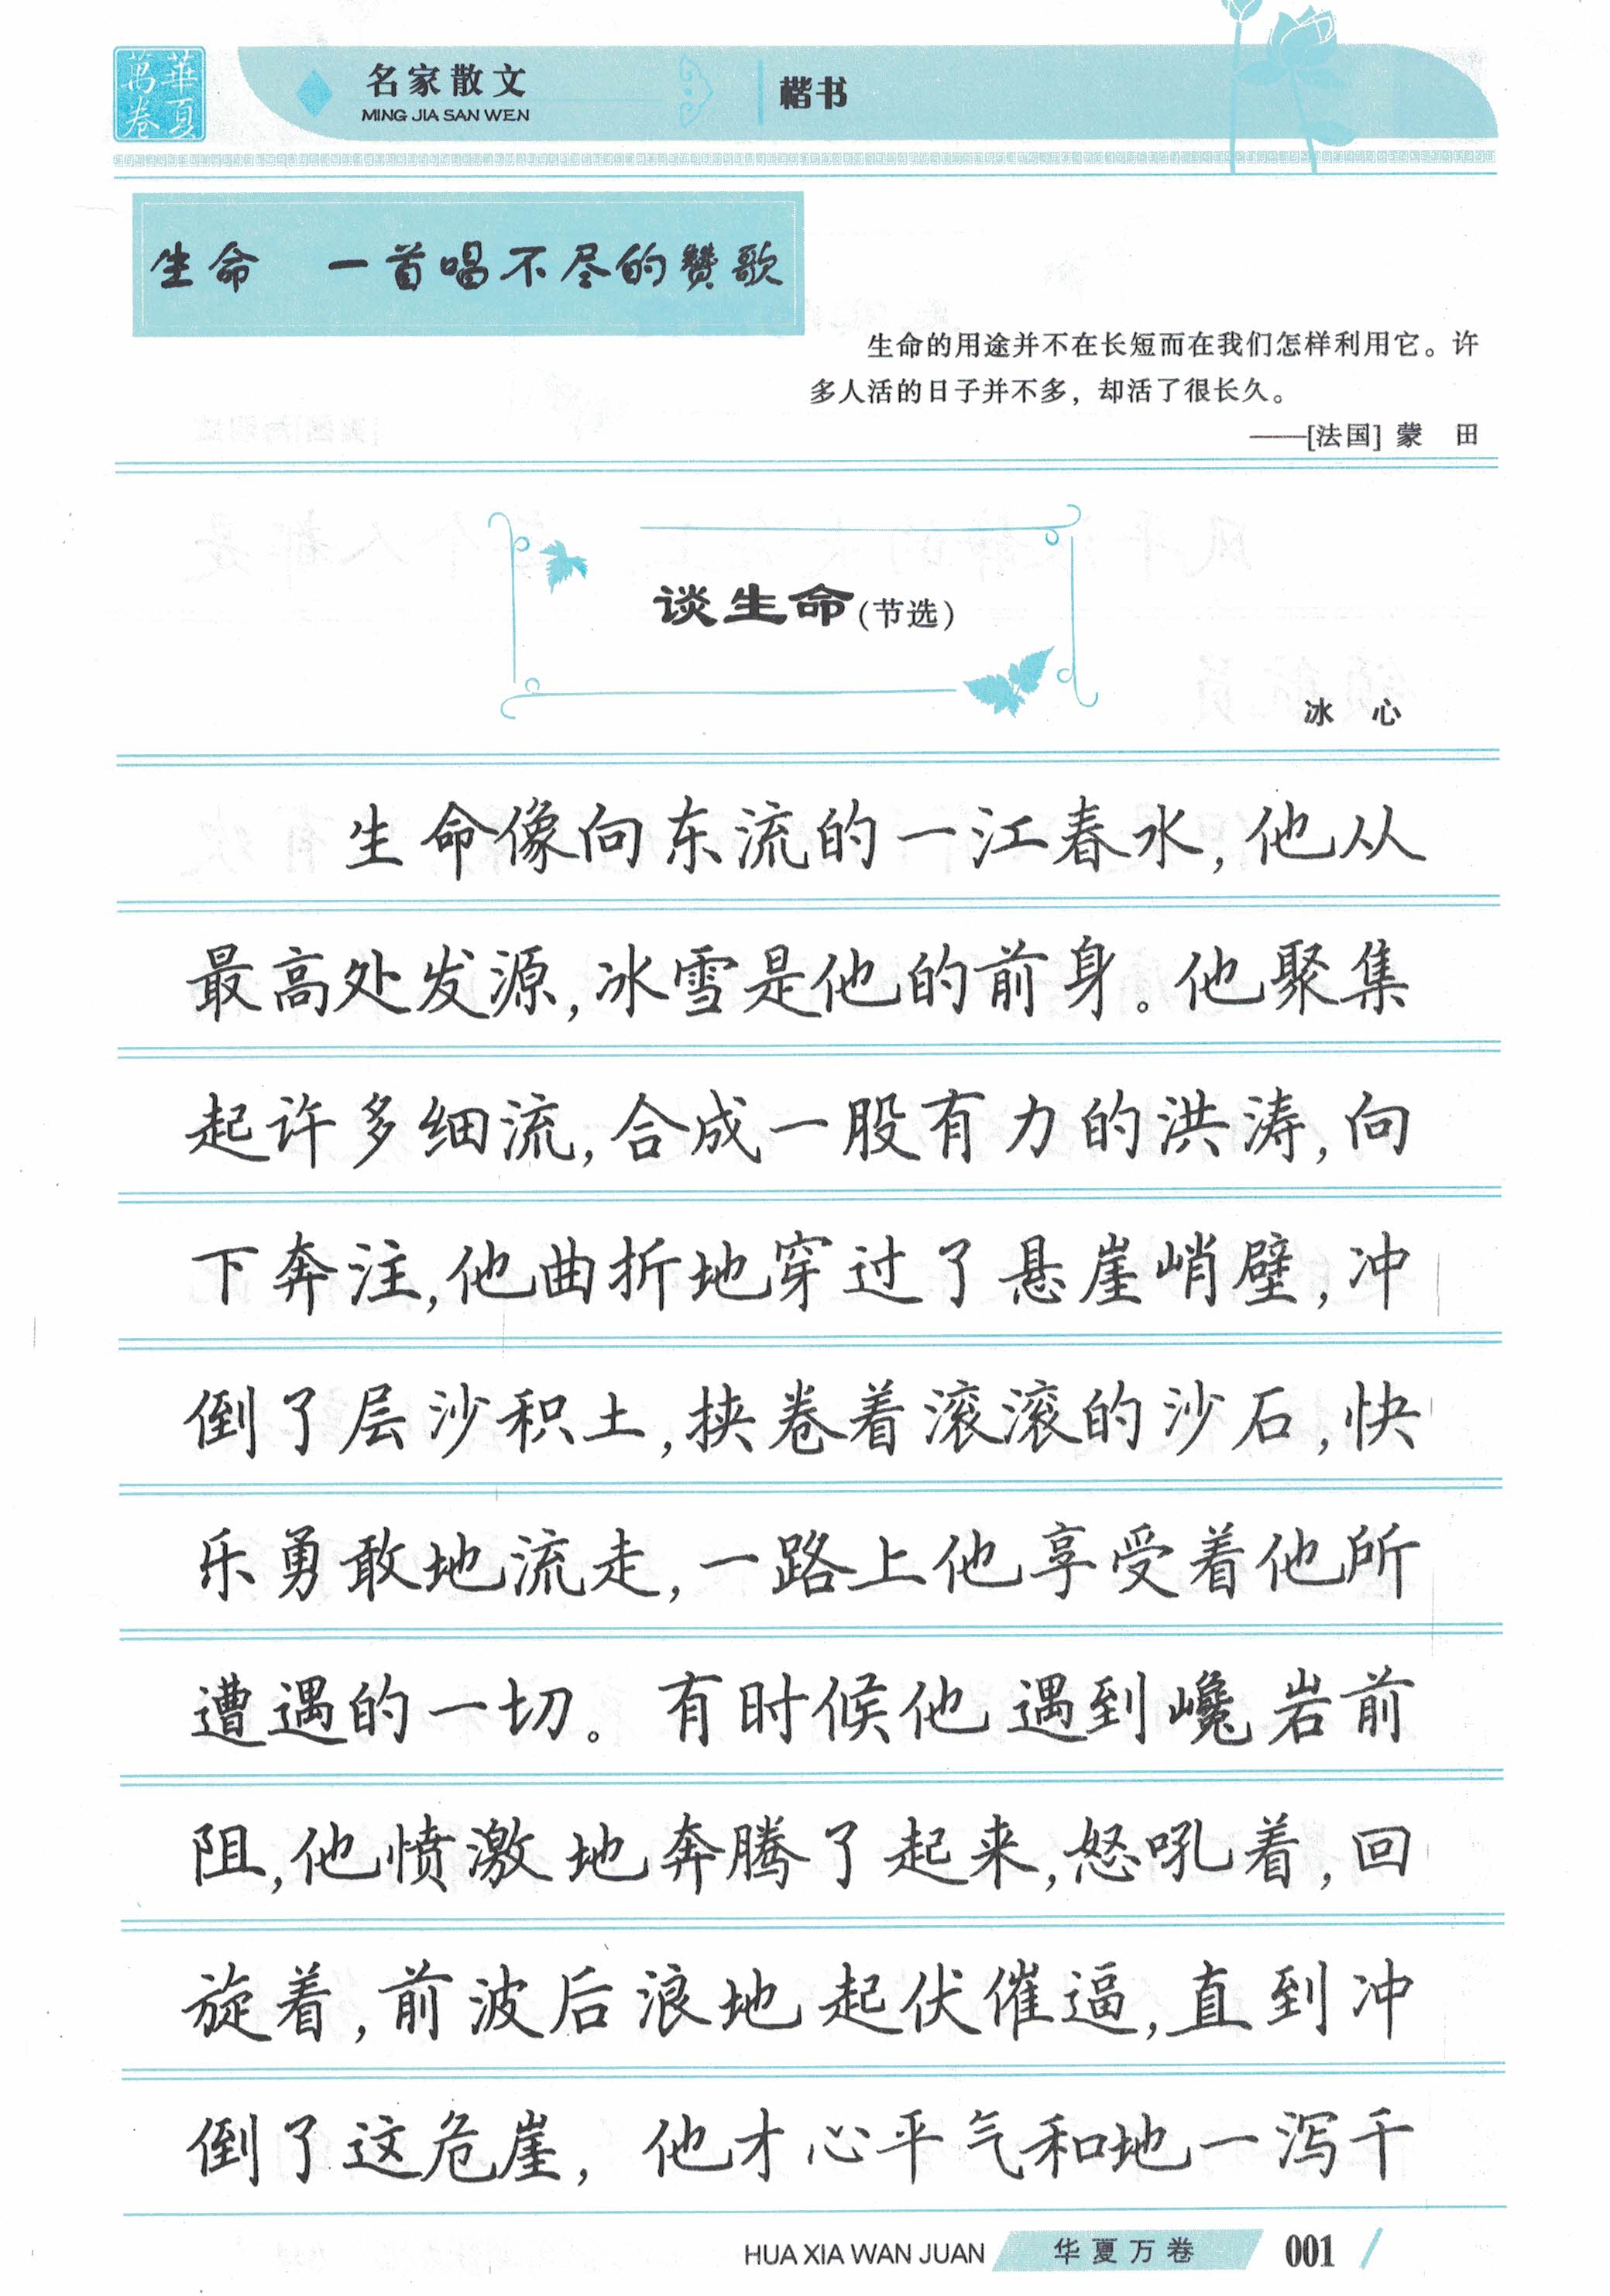 萬華
卷夏
名家散文
MING JIA SAN WEN
楷书
生命 一首唱不尽的赞歌
生命的用途并不在长短而在我们怎样利用它。许
多人活的日子并不多，却活了很长久。
——[法国] 蒙 田
谈生命(节选)
冰 心
生命像向东流的一江春水,他从
最高处发源,冰雪是他的前身。他聚集
起许多细流,合成一股有力的洪涛,向
下奔注,他曲折地穿过了悬崖峭壁,冲
倒了层沙积土,挟卷着滚滚的沙石,快
乐勇敢地流走,一路上他享受着他所
遭遇的一切。有时候他遇到巉岩前
阻,他愤激地奔腾了起来,怒吼着,回
旋着,前波后浪地起伏催逼,直到冲
倒了这危崖,他才心平气和地一泻千
HUA XIA WAN JUAN 华夏万卷 001